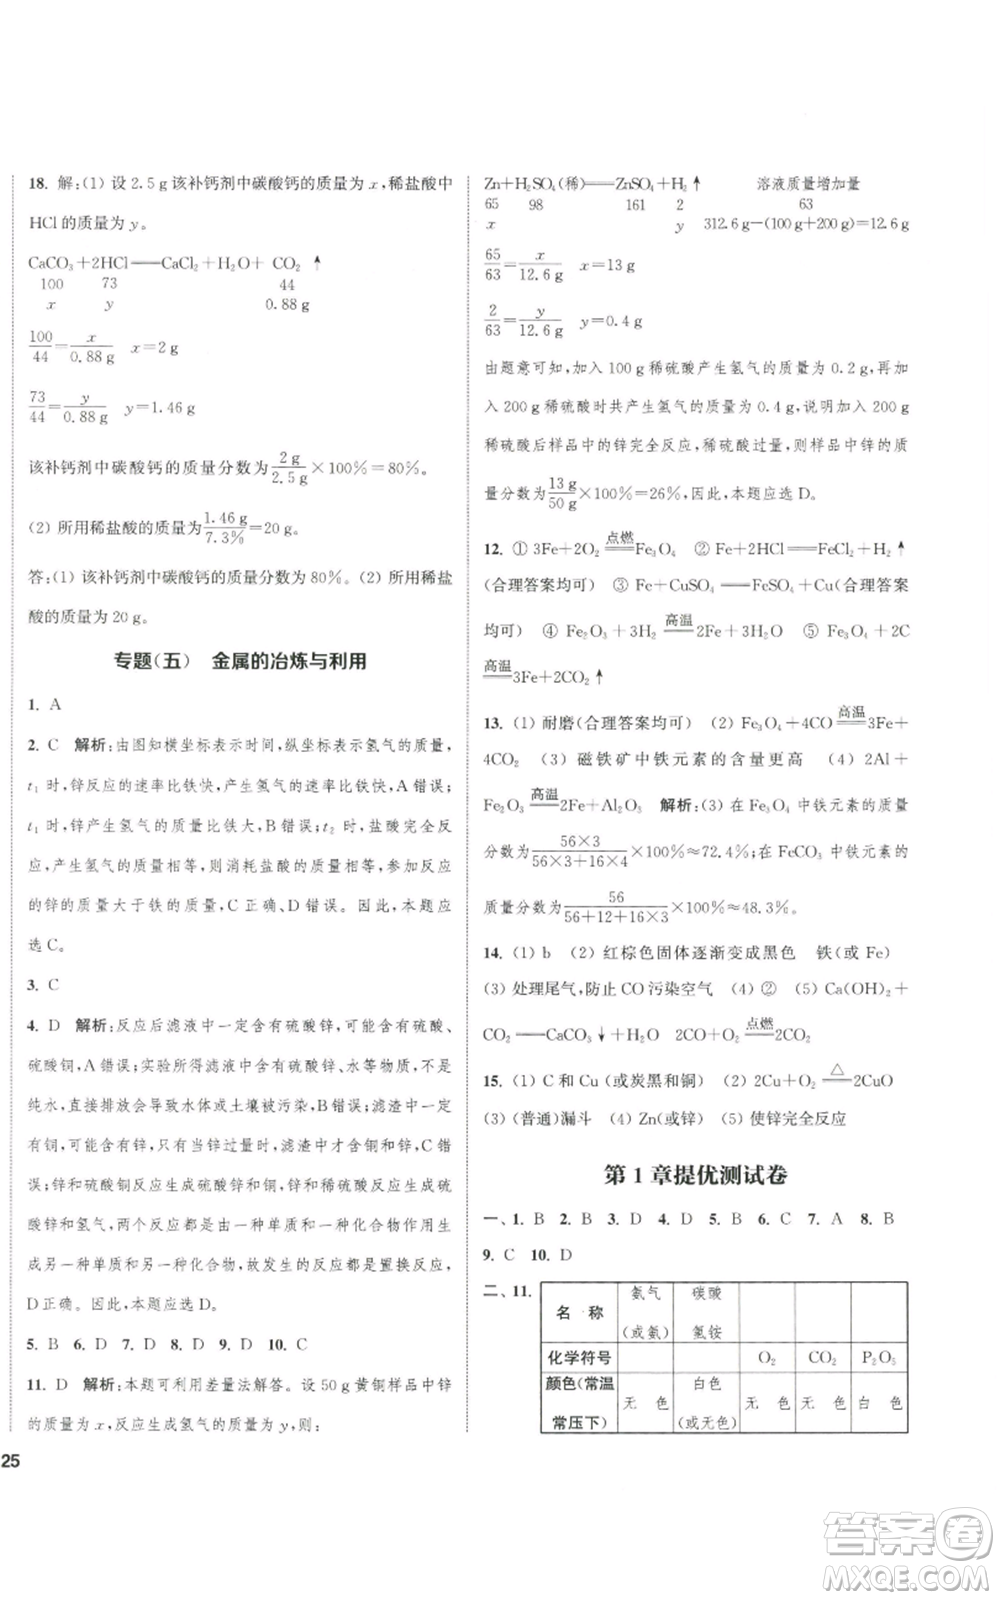 18. 解:(1) 设 2.5 g 该补钙剂中碳酸钙的质量为 x,稀盐酸中
HCl 的质量为 y。
CaCO₃+2HCl══CaCl₂+H₂O+ CO₂ ↑
100 73 44
x y 0.88 g
100/44=x/0.88 g x=2 g
73/44=y/0.88 g y=1.46 g
该补钙剂中碳酸钙的质量分数为2 g/2.5 g×100%=80%。
(2) 所用稀盐酸的质量为1.46 g/7.3%=20 g。
答:(1) 该补钙剂中碳酸钙的质量分数为 80%。(2) 所用稀盐
酸的质量为 20 g。
专题(五) 金属的冶炼与利用
1. A
2. C 解析:由图知横坐标表示时间,纵坐标表示氢气的质量,
t₁ 时,锌反应的速率比铁快,产生氢气的速率比铁快,A 错误;
t₁ 时,锌产生氢气的质量比铁大,B 错误;t₂ 时,盐酸完全反
应,产生氢气的质量相等,则消耗盐酸的质量相等,参加反应
的锌的质量大于铁的质量,C 正确、D 错误。因此,本题应
选 C。
3. C
4. D 解析:反应后滤液中一定含有硫酸锌,可能含有硫酸、
硫酸铜,A 错误;实验所得滤液中含有硫酸锌、水等物质,不是
纯水,直接排放会导致水体或土壤被污染,B 错误;滤渣中一定
有铜,可能含有锌,只有当锌过量时,滤渣中才含铜和锌,C 错
误。锌和硫酸铜反应生成硫酸锌和铜,锌和稀硫酸反应生成硫
酸锌和氢气,两个反应都是由一种单质和一种化合物作用生
成另一种单质和另一种化合物,故发生的反应都是置换反应,
D 正确。因此,本题应选 D。
5. B 6. D 7. D 8. D 9. D 10. C
11. D 解析:本题可利用差量法解答。设 50 g 黄铜样品中锌
的质量为 x,反应生成氢气的质量为 y,则:
25
Zn+H₂SO₄(稀)══ZnSO₄+H₂↑ 溶液质量增加量
65 98 161 2 63
x y 312.6 g−(100 g+200 g)=12.6 g
65/63=x/12.6 g x=13 g
2/63=y/12.6 g y=0.4 g
由题意可知,加入 100 g 稀硫酸产生氢气的质量为 0.2 g,再加
入 200 g 稀硫酸时共产生氢气的质量为 0.4 g,说明加入 200 g
稀硫酸后样品中的锌完全反应,稀硫酸过量,则样品中锌的质
量分数为13 g/50 g×100%=26%,因此,本题应选 D。
12. ① 3Fe+2O₂ ═点燃═ Fe₃O₄ ② Fe+2HCl══FeCl₂+H₂↑
(合理答案均可) ③ Fe+CuSO₄══FeSO₄+Cu(合理答案
均可) ④ Fe₂O₃+3H₂ ═高温═ 2Fe+3H₂O ⑤ Fe₂O₃+2C
═高温═ 3Fe+2CO₂↑
13. (1) 耐磨(合理答案均可) (2) Fe₃O₄+4CO ═高温═ 3Fe+
4CO₂ (3) 磁铁矿中铁元素的质量分数更高 (4) 2Al+
Fe₂O₃ ═高温═ 2Fe+Al₂O₃ 解析:(3) 在 Fe₃O₄ 中铁元素的质量
分数为56×3/56×3+16×4×100%≈72.4%;在 FeCO₃ 中铁元素的
质量分数为56/56+12+16×3×100%≈48.3%。
14. (1) b (2) 红棕色固体逐渐变成黑色 铁(或 Fe)
(3) 处理尾气,防止 CO 污染空气 (4) ② (5) Ca(OH)₂+
CO₂══CaCO₃↓+H₂O 2CO+O₂ ═点燃═ 2CO₂
15. (1) C 和 Cu (或炭黑和铜) (2) 2Cu+O₂ ═△═ 2CuO
(3) (普通)漏斗 (4) Zn(或锌) (5) 使锌完全反应
第 1 章提优测试卷
一、1. B 2. B 3. D 4. D 5. B 6. C 7. A 8. B
9. C 10. D
二、11.
名 称 氨气(或氨) 碳酸氢铵
化学符号 O₂ CO₂ P₂O₅
颜色(常温常压下) 无 色 白色(或无色) 无 色 无 色 白 色
答案卷
MXQE.COM